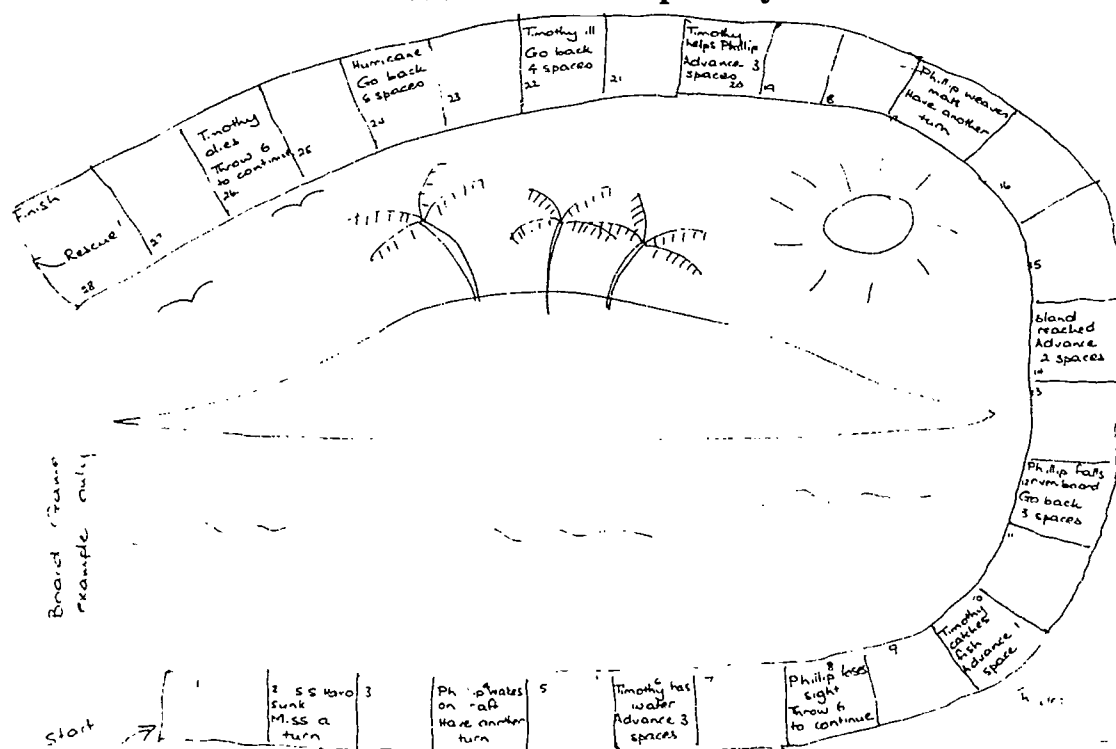 Start
1
2 S S Hato
Sunk
Miss a
turn
3
4
on raft
Have another
turn
5
6
Timothy has
water
Advance 3
spaces
7
8
Phillip loses
sight
Throw 6
to continue
9
10
Timothy
catches
fish
Advance 1
space
11
12
Phillip falls
overboard
Go back
3 spaces
13
14
Island
reached
Advance
2 spaces
15
16
Phillip weaves
mats
Have another
turn
8
19
20
Timothy
helps Phillip
Advance 3
spaces
21
22
Timothy ill
Go back
4 spaces
23
24
Hurricane!
Go back
5 spaces
25
26
Timothy
dies
Throw 6
to continue
27
28
Rescue!
Finish
Board Game
example only